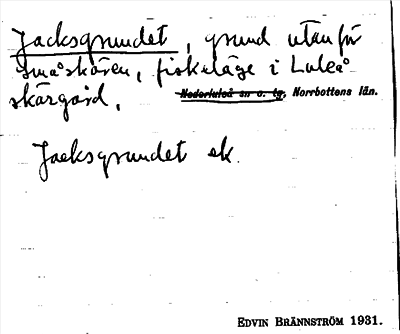 Jacksgrundet, grund utanför
Småskären, fiskeläge i Luleå
skärgård,
Nederluleå sn o. tg, Norrbottens län.
Jacksgrundet ek.
EDVIN BRÄNNSTRÖM 1931.